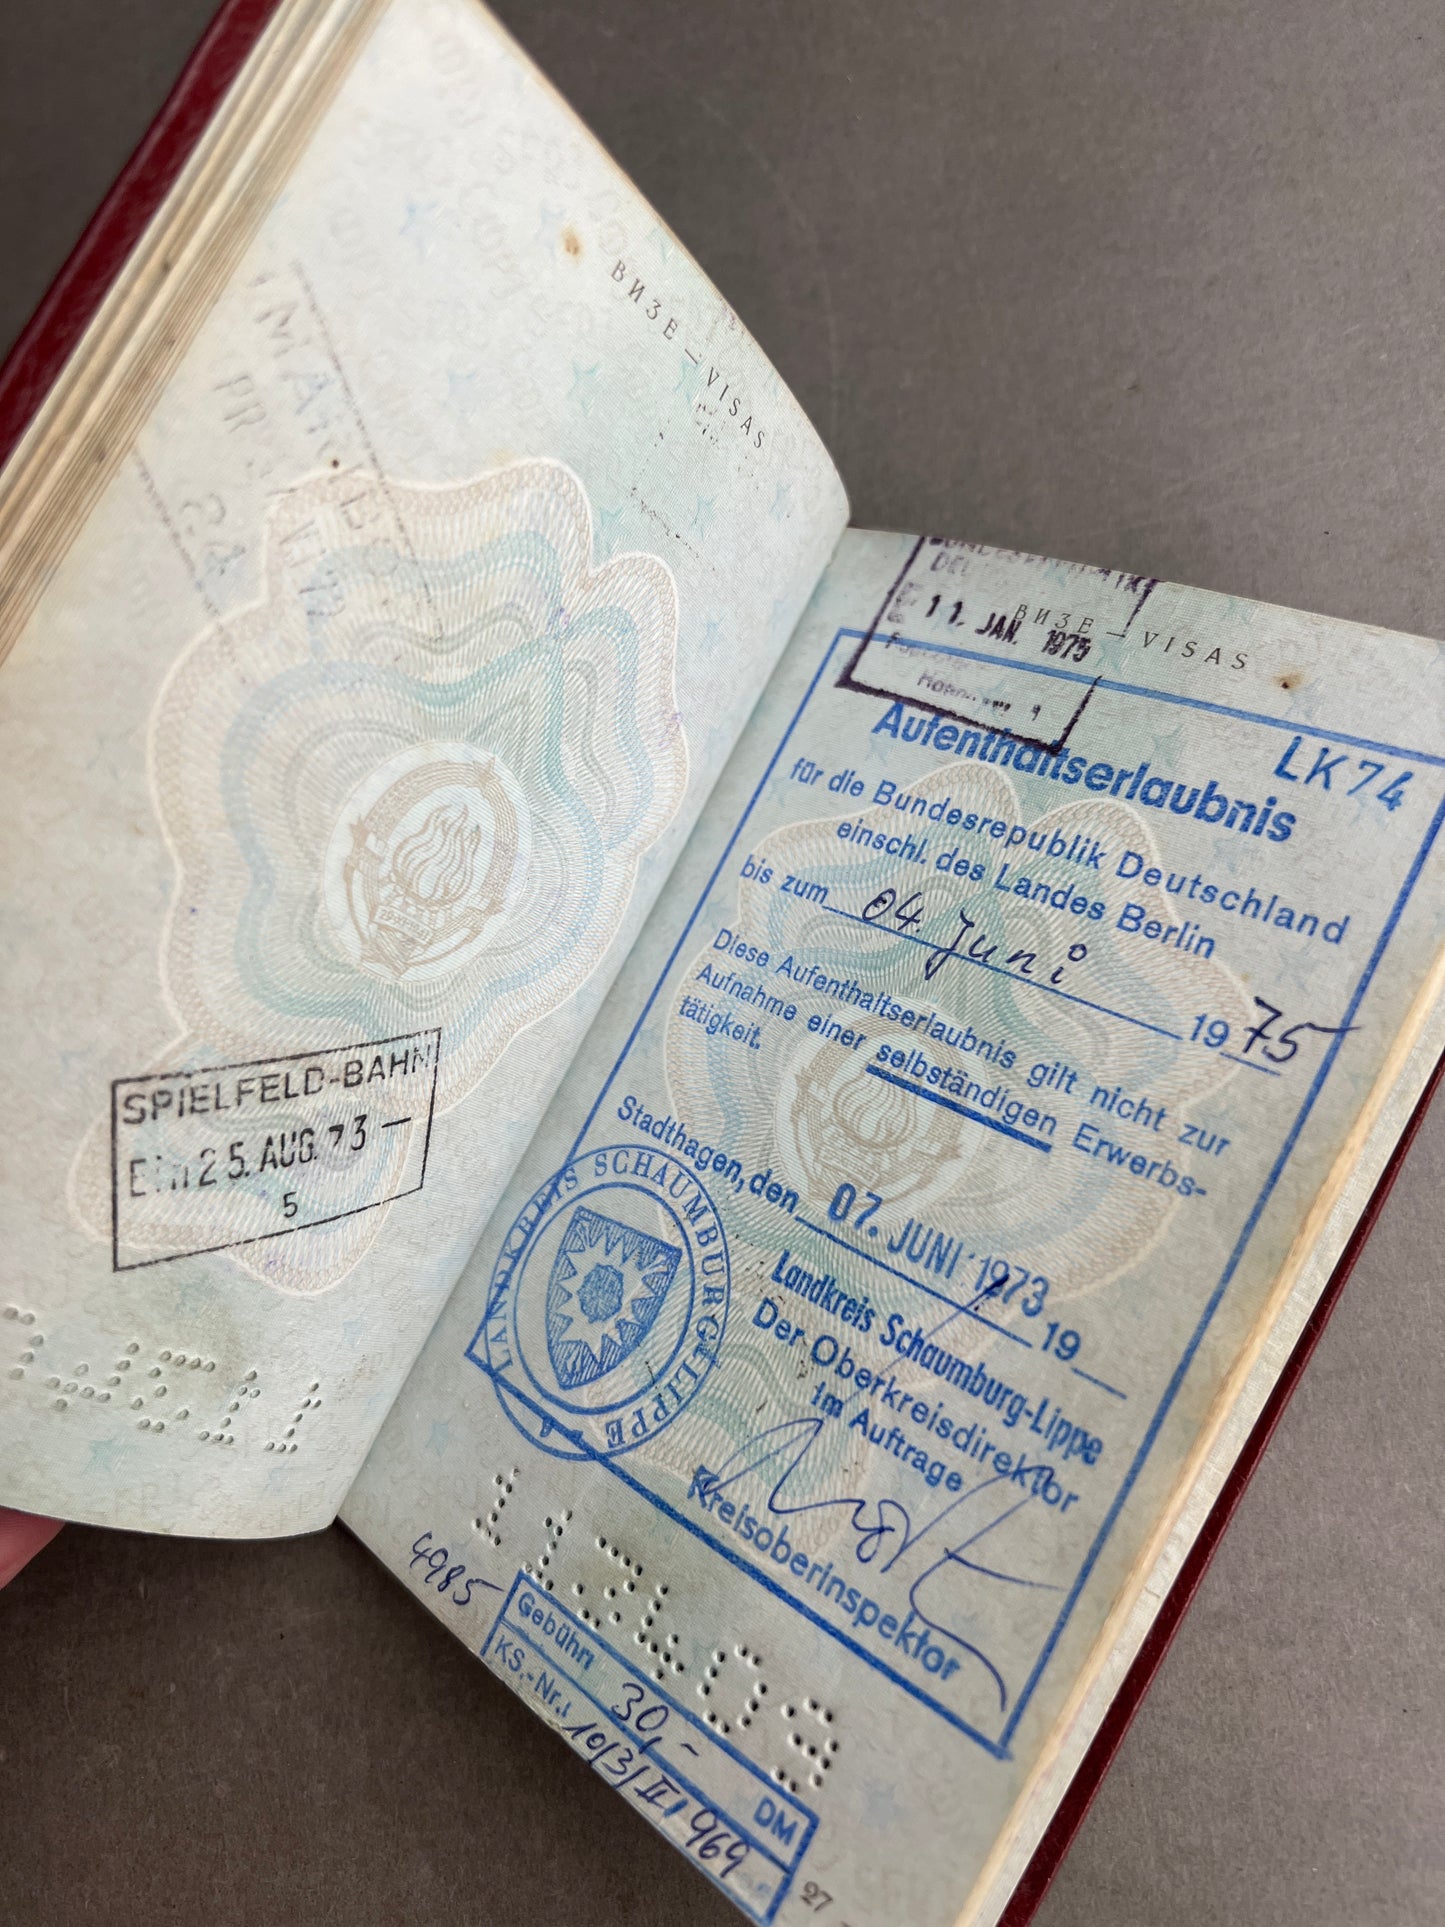 ВИЗЕ — VISAS
SPIELFELD-BAHN
Ein 25. AUG. 73 —
5
ВИЗЕ — VISAS
11. JAN. 1975
LK 74
Aufenthaltserlaubnis
für die Bundesrepublik Deutschland
einschl. des Landes Berlin
bis zum 04. Juni 1975
Diese Aufenthaltserlaubnis gilt nicht zur
Aufnahme einer selbständigen Erwerbs-
tätigkeit.
Stadthagen, den 07. JUNI 1973 19
LANDKREIS SCHAUMBURG-LIPPE
Landkreis Schaumburg-Lippe
Der Oberkreisdirektor
im Auftrage
Kreisoberinspektor
112403
4985
Gebühr: 30,- DM
KS.-Nr.: 10/3/II/969
27